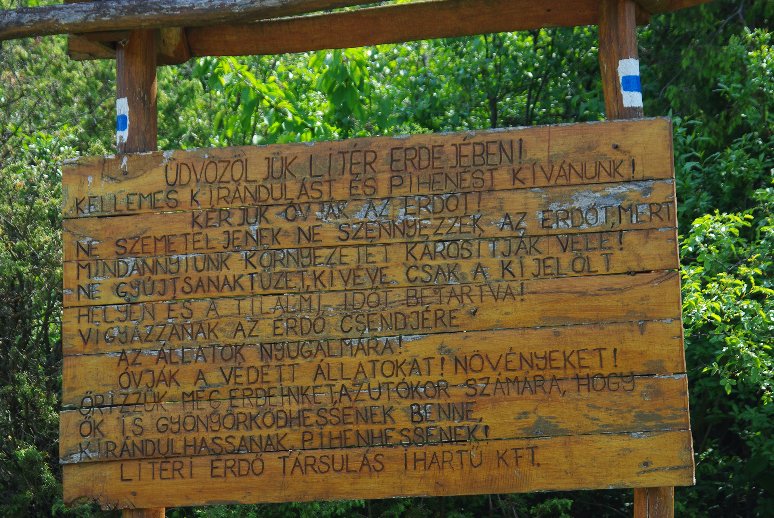 ÜDVÖZÖLJÜK LITÉR ERDEJÉBEN!
KELLEMES KIRÁNDULÁST ÉS PIHENÉST KÍVÁNUNK!
KÉRJÜK ÓVJÁK AZ ERDŐT!
NE SZEMETELJENEK NE SZENNYEZZEK AZ ERDŐT, MERT
MINDANNYIUNK KÖRNYEZETÉT KÁROSÍTJÁK VELE!
NE GYÚJTSANAK TÜZET, KIVÉVE CSAK A KIJELÖLT
HELYEN ÉS A TILALMI IDŐT BETARTVA!
VIGYÁZZANAK AZ ERDŐ CSENDJÉRE
AZ ÁLLATOK NYUGALMÁRA!
ÓVJÁK A VÉDETT ÁLLATOKAT! NÖVÉNYEKET!
ŐRIZZÜK MEG ERDEINKET, AZ UTÓKOR SZÁMÁRA, HOGY
ŐK IS GYÖNYÖRKÖDHESSENEK BENNE,
KIRÁNDULHASSANAK, PIHENHESSENEK!
LITÉRI ERDŐ TÁRSULÁS IHARTÜ KFT.